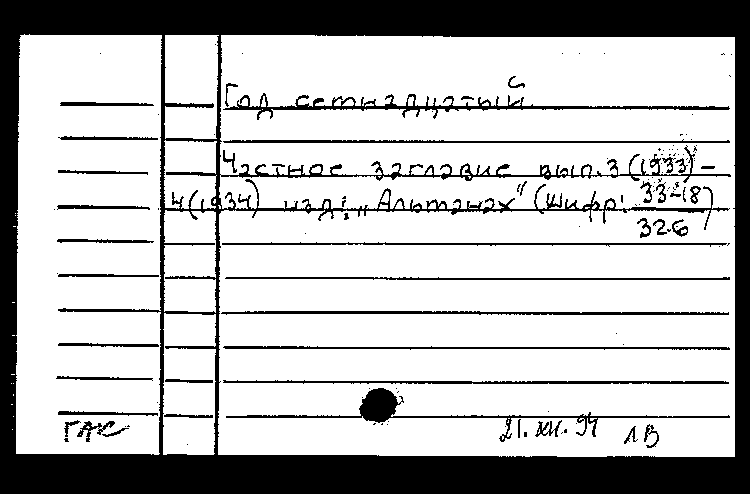 Год семнадцатый
Частное заглавие вып. 3 (1933) –
4 (1934) изд.: „Альманах" (Шифр: 33-18/326)
ГАК 21.XII.94 ЛВ